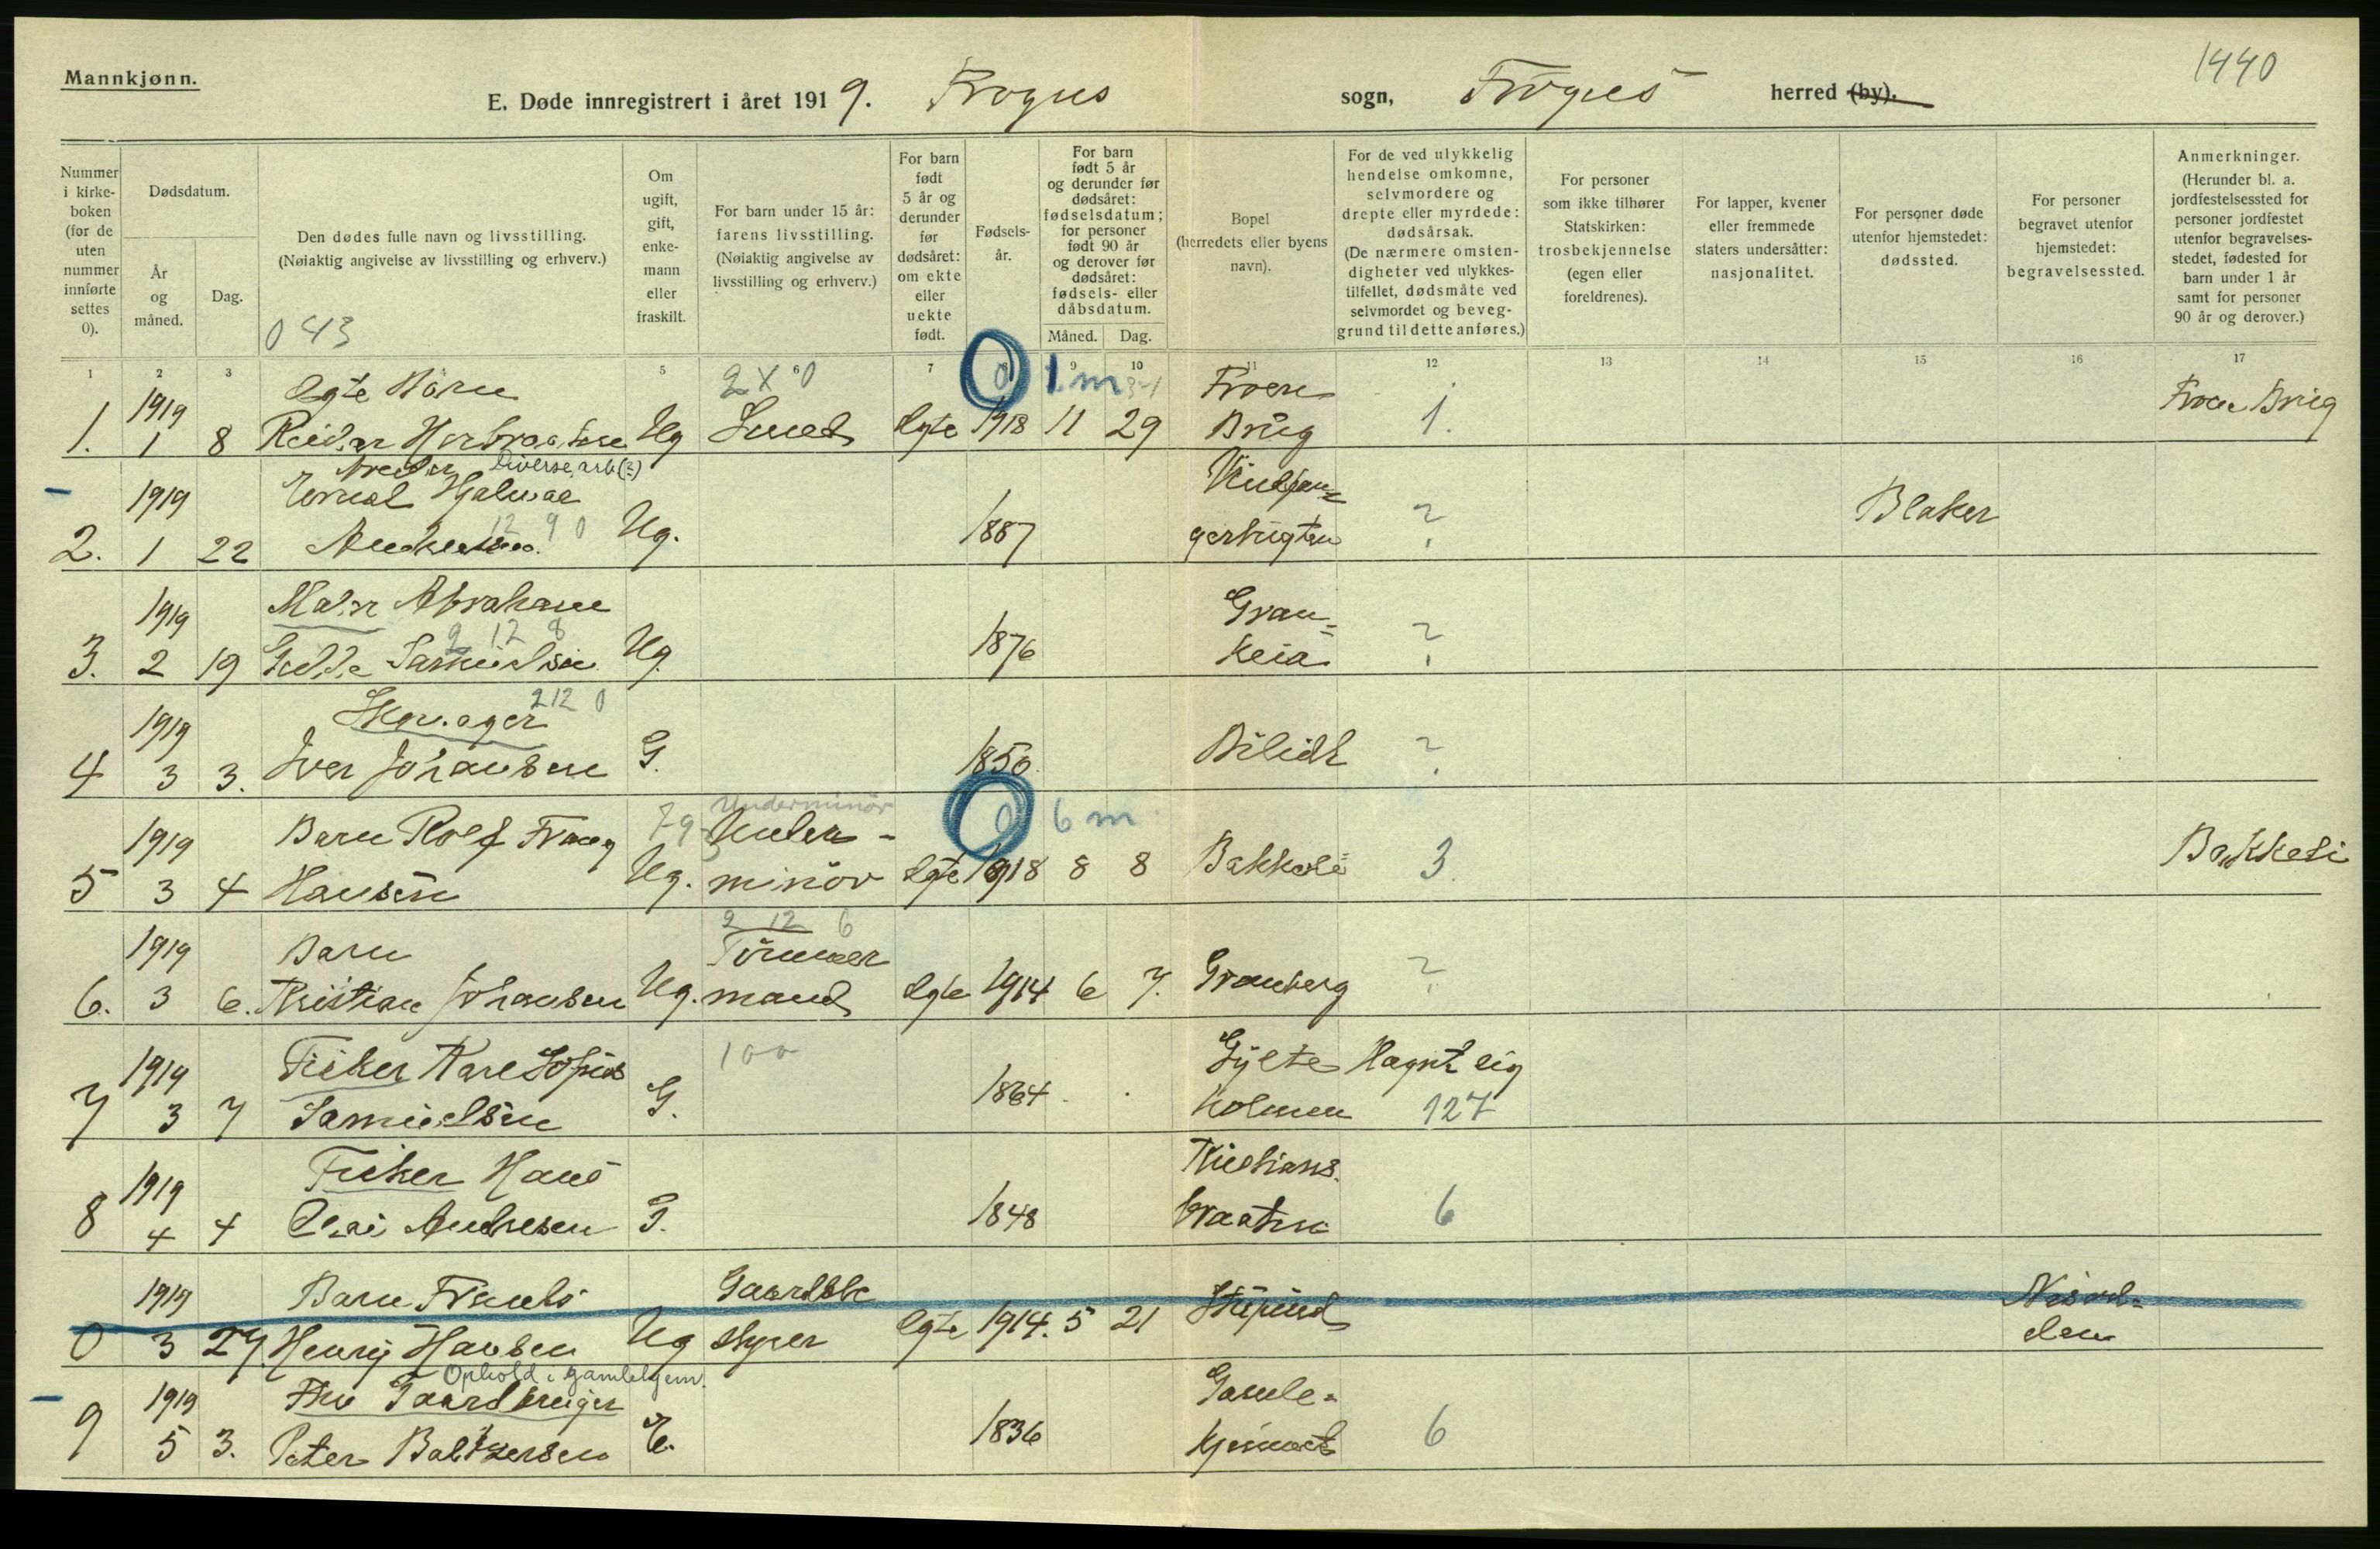 Mannkjønn.
1440
E. Døde innregistrert i året 1919. Frogns sogn, Frogns herred (by).
Nummer i kirke-boken (for de uten nummer innførte settes 0).
Dødsdatum.
År og måned.
Dag.
Den dødes fulle navn og livsstilling.
(Nøiaktig angivelse av livsstilling og erhverv.)
043
Om ugift, gift, enke-mann eller fraskilt.
For barn under 15 år: farens livsstilling.
(Nøiaktig angivelse av livsstilling og erhverv.)
For barn født 5 år og derunder før dødsåret: om ekte eller uekte født.
Fødsels-år.
For barn født 5 år og derunder før dødsåret: fødselsdatum; for personer født 90 år og derover før dødsåret: fødsels- eller dåbsdatum.
Måned. Dag.
Bopel (herredets eller byens navn).
For de ved ulykkelig hendelse omkomne, selvmordere og drepte eller myrdede: dødsårsak.
(De nærmere omsten-digheter ved ulykkes-tilfellet, dødsmåte ved selvmordet og beveg-grund til dette anføres.)
For personer som ikke tilhører Statskirken: trosbekjennelse (egen eller foreldrenes).
For lapper, kvener eller fremmede staters undersåtter: nasjonalitet.
For personer døde utenfor hjemstedet: dødssted.
For personer begravet utenfor hjemstedet: begravelsessted.
Anmerkninger.
(Herunder bl. a. jordfestelsessted for personer jordfestet utenfor begravelses-stedet, fødested for barn under 1 år samt for personer 90 år og derover.)
1 2 3 5 6 7 9 10 11 12 13 14 15 16 17
1919 Egte Barn 2 X 0 0 1 m
1. 1 8 Reidar Ug Smed Egte 1918 11 29 Brug 1. Brug
Diverse arb (?)
1919 Hjalmar 12 9 0
2. 1 22 Ug. 1887 ? Blaker
1919 Maler Abraham 2 12 8 Gran=
3. 2 19 Samuelsen Ug. 1876 keia ?
1919 212 0
4 3 3. Iver Johansen G. 1850. ?
Underminör 0 6 m
1919 Barn Rolf 79 Under-
5 3 4 Hansen Ug. minör Egte 1918 8 8 Bakkeli 3. Bakkeli
1919 Barn 2 12 6 Tömmer
6. 3 6. Kristian Johansen Ug. mand Egte 1914 6 7. Granberg ?
1919 Fisker Karl 100 Gylte Hagntlig
7 3 7 Samuelsen G. 1864. holmen 127
1919 Fisker Hans Kristians
8 4 4 Olai Andresen G. 1848 braaten 6
1919 Barn Gaardbe
0 3 27. Henry Hansen Ug styrer Egte 1914. 5 21 Nesod=den
Ophold i gamlehjem.
1919 Gaardbruger Gamle=
9 5 3. Peter Baltzersen E. 1836 hjemmet 6